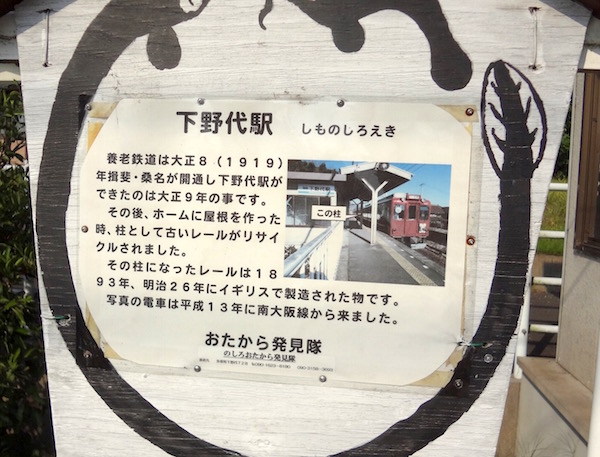 下野代駅 しものしろえき
養老鉄道は大正8(1919)
年揖斐・桑名が開通し下野代駅が
できたのは大正9年の事です。
その後、ホームに屋根を作った
時、柱として古いレールがリサイ
クルされました。
その柱になったレールは18
93年、明治26年にイギリスで製造された物です。
写真の電車は平成13年に南大阪線から来ました。
この柱
おたから発見隊
のしろおたから発見隊